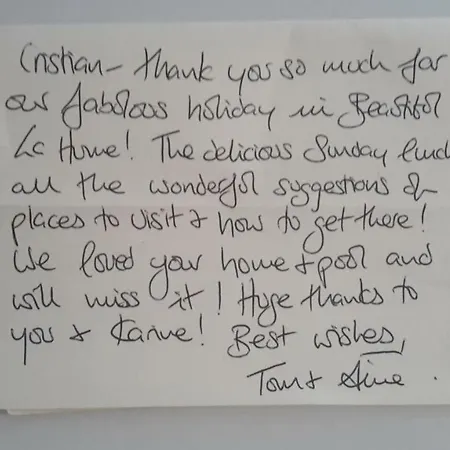 Cristian – thank you so much for
our fabulous holiday in Beautiful
La Hume! The delicious Sunday lunch
all the wonderful suggestions of
places to visit & how to get there!
We loved your home & pool and
will miss it! Huge thanks to
you & Karine! Best wishes,
Tom &